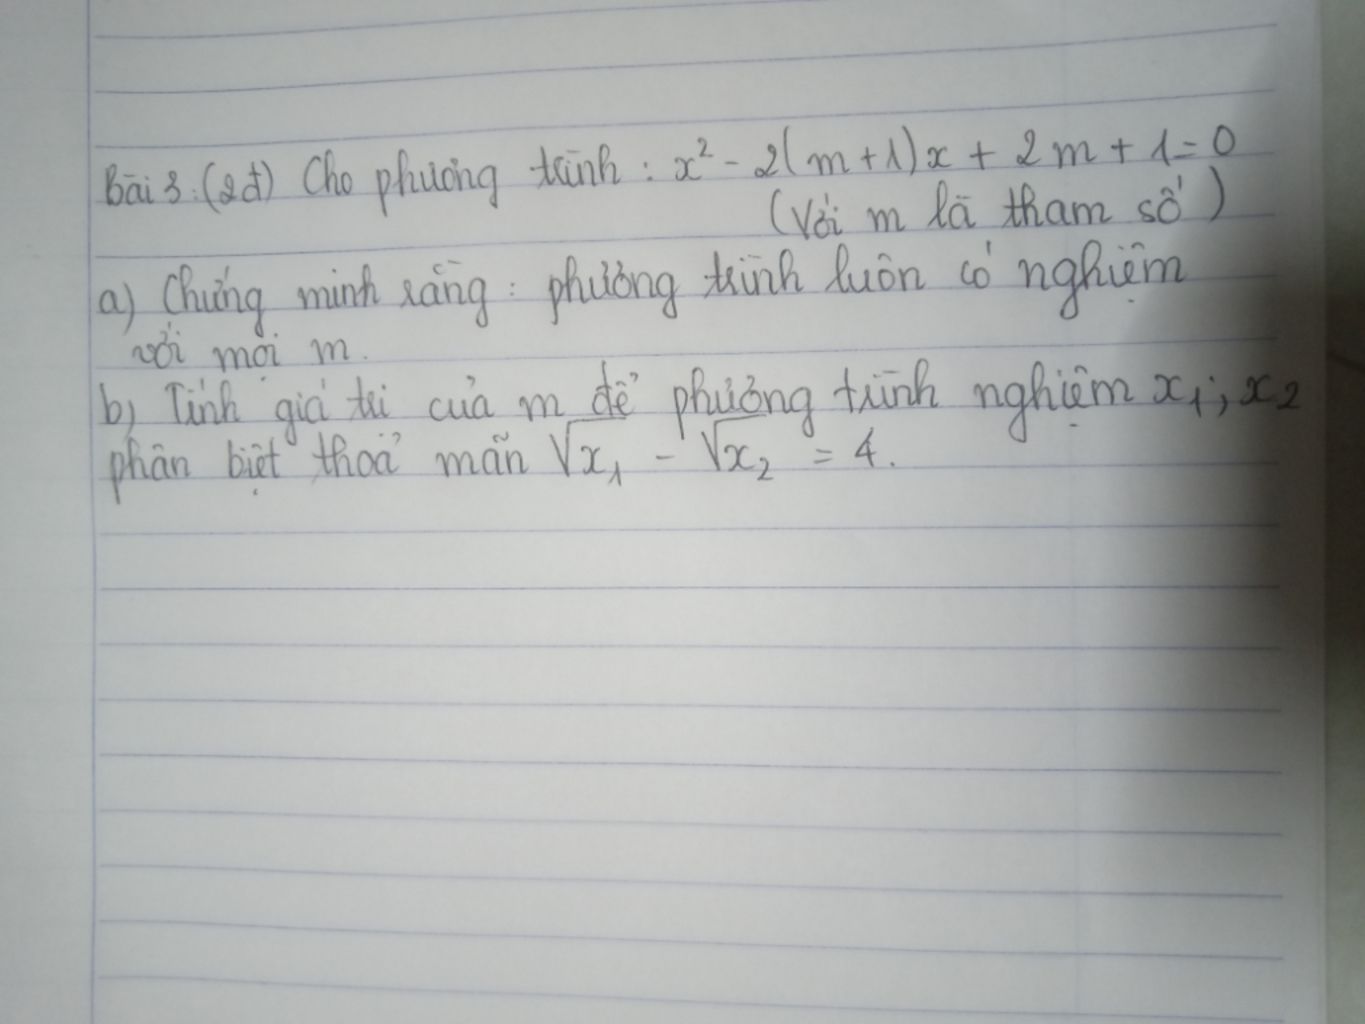 Bài 3: (2đ) Cho phương trình : x² - 2(m+1)x + 2m + 1 = 0
(Với m là tham số)
a) Chứng minh rằng : phương trình luôn có nghiệm
với mọi m.
b) Tính giá trị của m để phương trình nghiệm x₁; x₂
phân biệt thoả mãn √x₁ - √x₂ = 4.